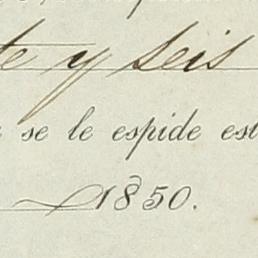 te y seis
se le espide est
1850.